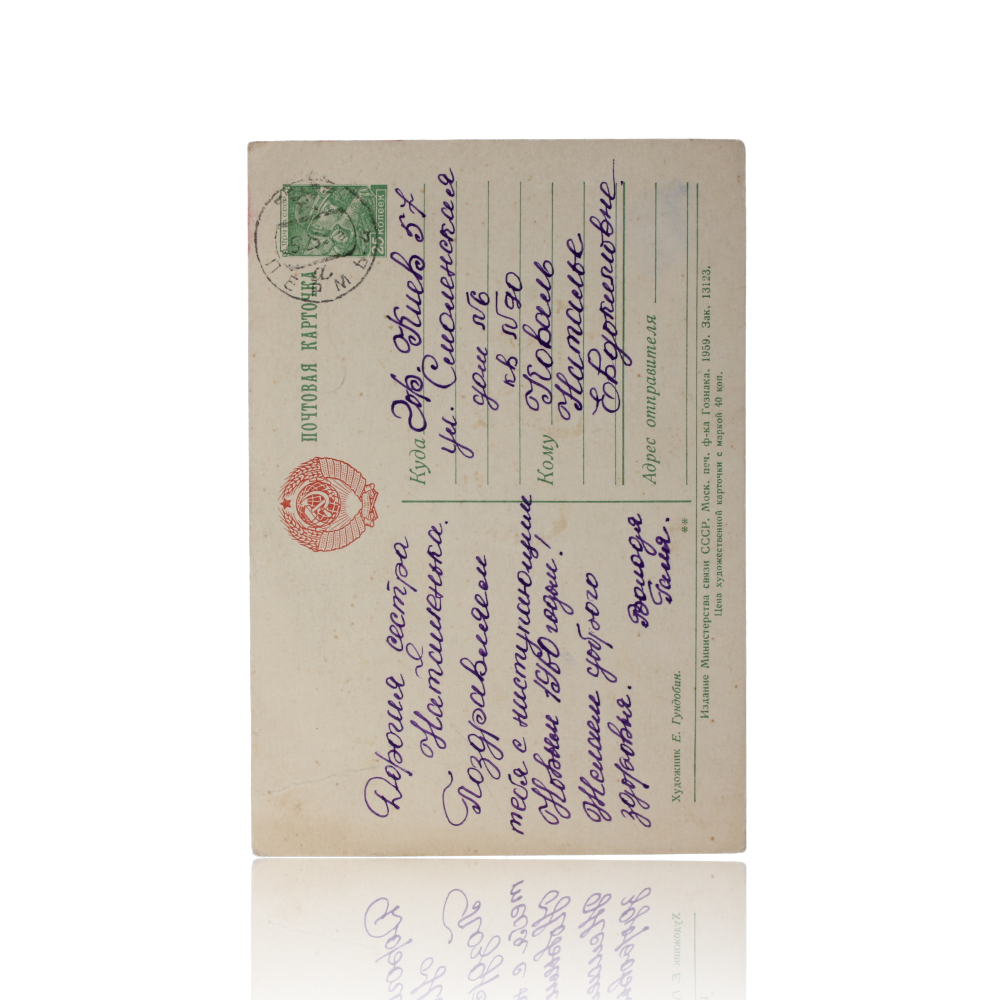 ПОЧТОВАЯ КАРТОЧКА
ПОЧТА СССР
25 КОПЕЕК
ПЕРМЬ
Дорогая сестра
Наташенька.
Поздравляем
тебя с наступающим
Новым 1960 годом!
Желаем доброго
здоровья.
Володя
Галя.
Куда гор. Киев 57
ул. Смоленская
дом №6
кв №70
Кому Коваль
Наталье
Евдокимовне
Адрес отправителя
**
Художник Е. Гундобин.
Издание Министерства связи СССР. Моск. печ. ф-ка Гознака. 1959. Зак. 13123.
Цена художественной карточки с маркой 40 коп.